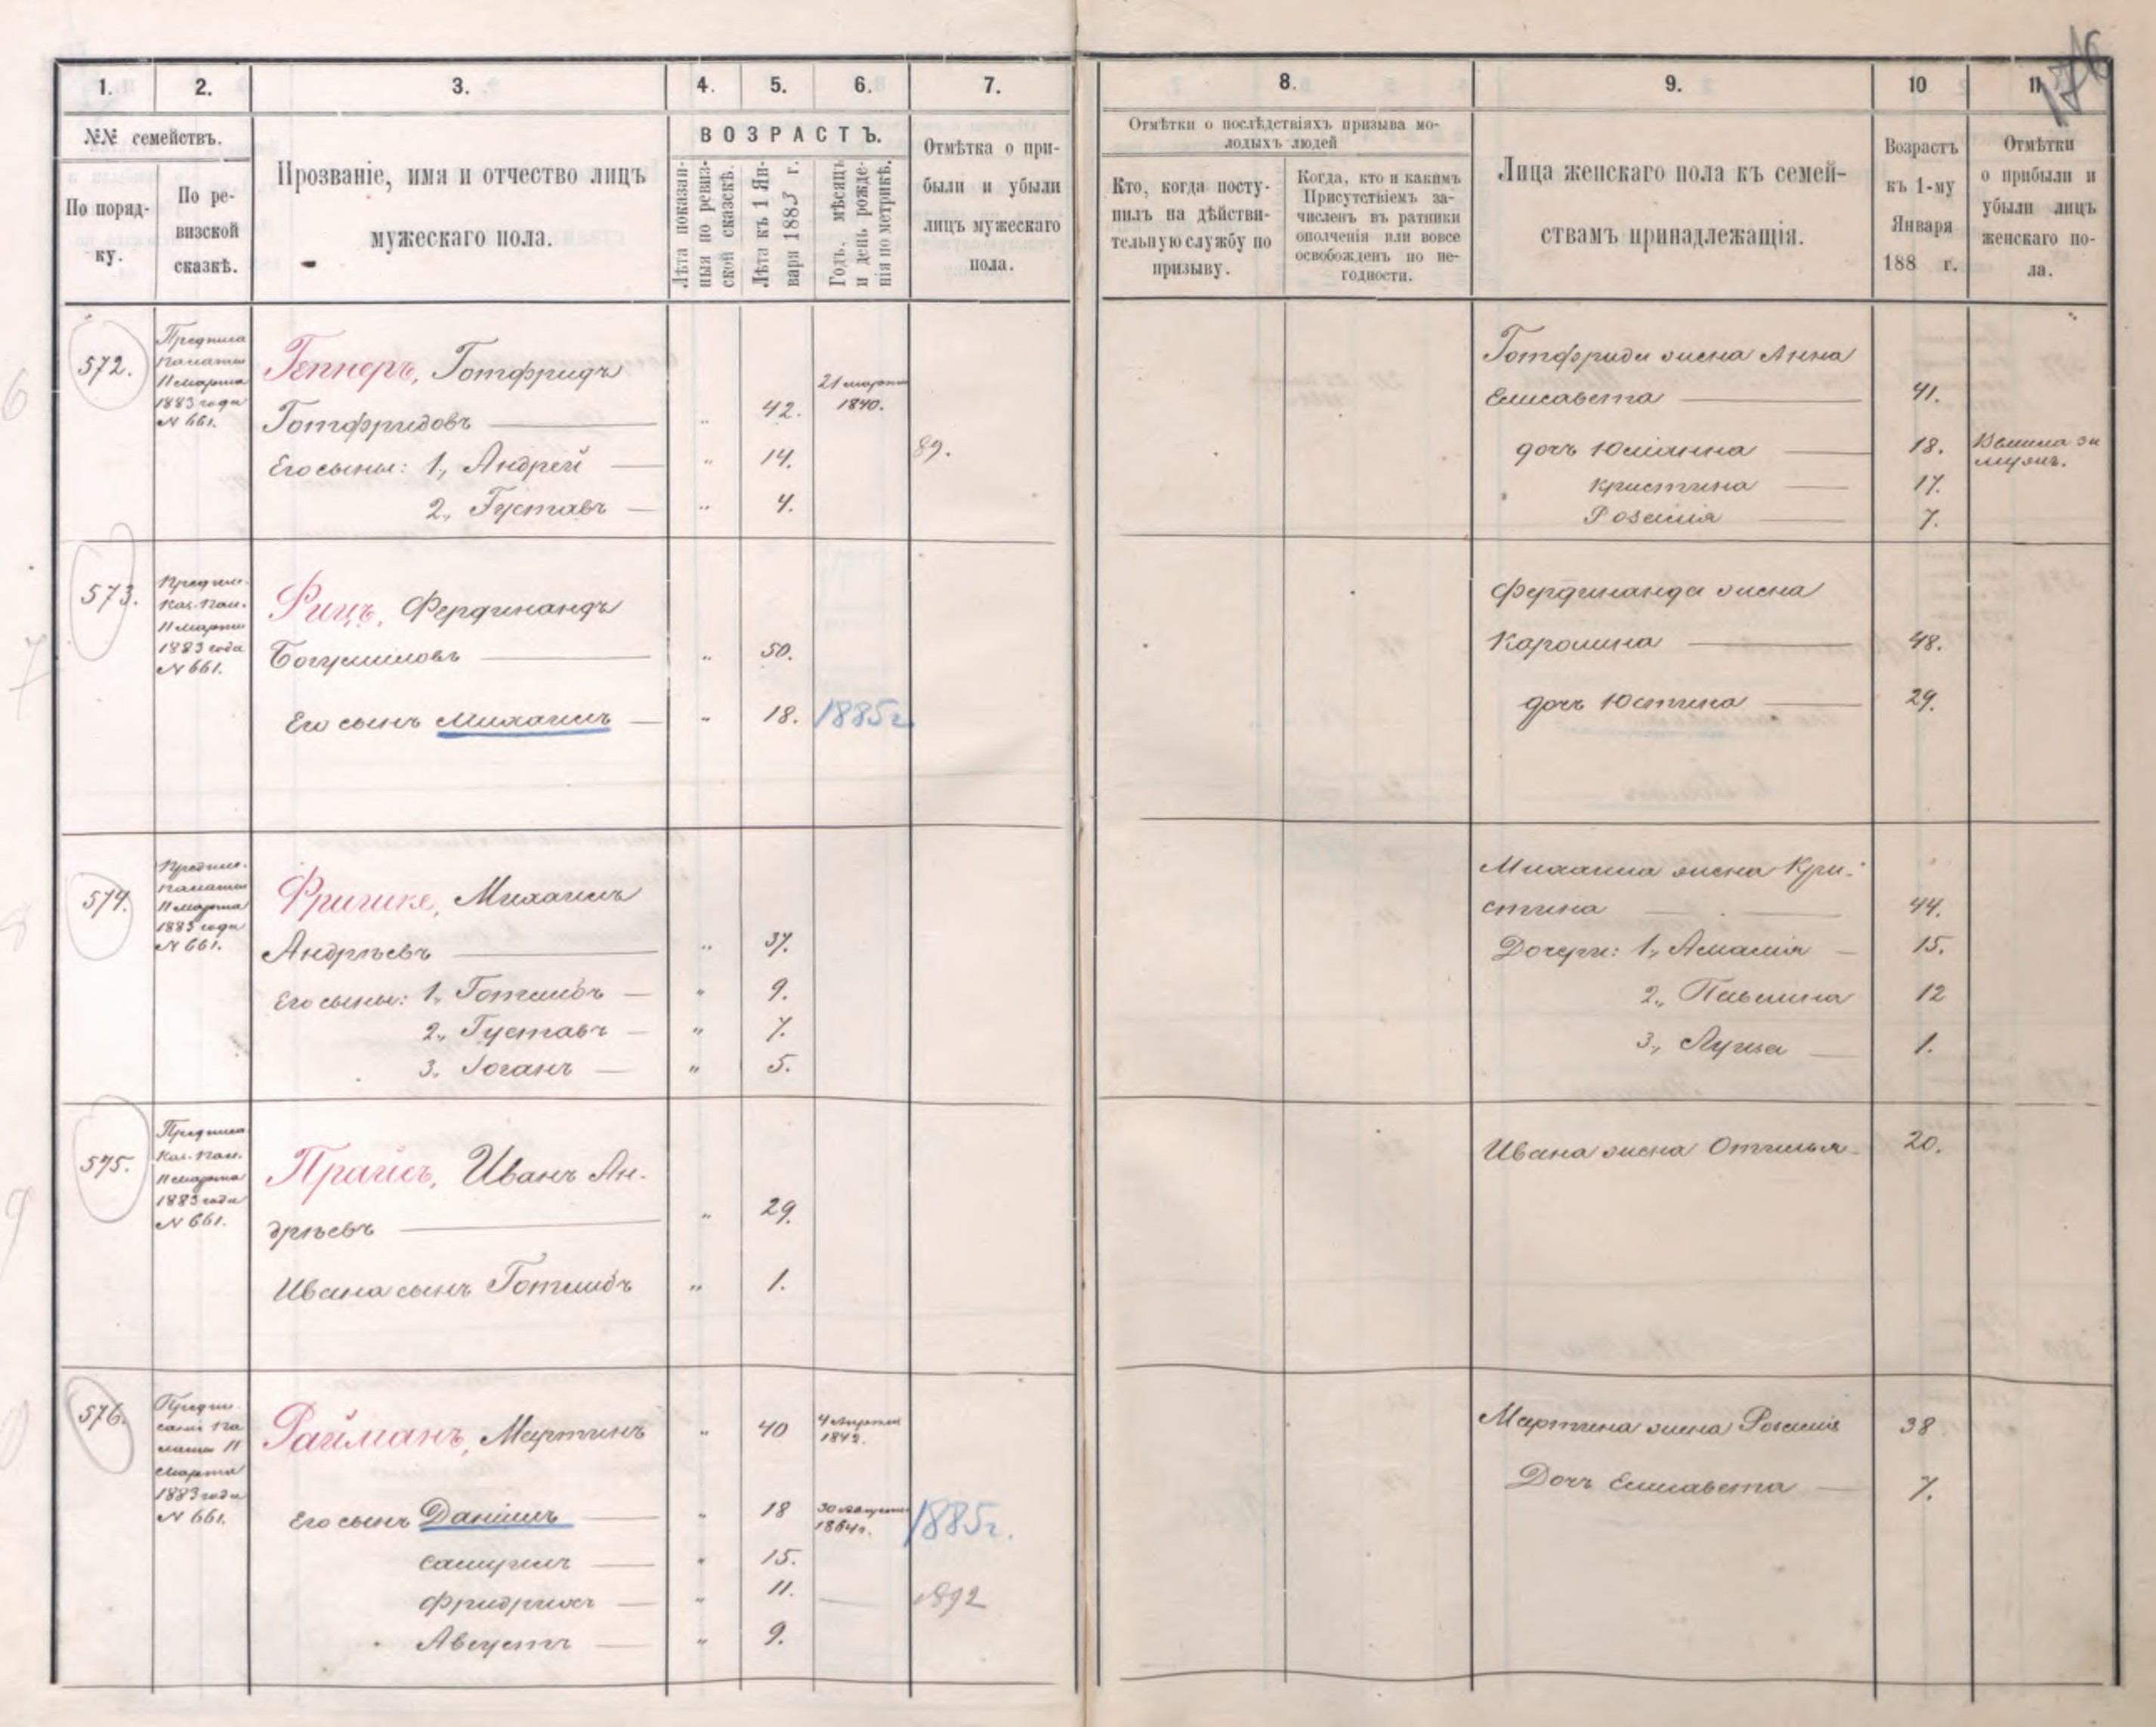 176
1. 2. 3. 4. 5. 6. 7. 8. 9. 10 11
№№ семействъ.
По поряд-
ку.
По ре-
визской
сказкѣ.
Прозваніе, имя и отчество лицъ
мужескаго пола.
ВОЗРАСТЪ.
Лѣта показан-
ныя по ревиз-
ской сказкѣ.
Лѣта къ 1 Ян-
варя 1883 г.
Годъ, мѣсяцъ
и день рожде-
нія по метрикѣ.
Отмѣтка о при-
были и убыли
лицъ мужескаго
пола.
Отмѣтки о послѣдствіяхъ призыва мо-
лодыхъ людей
Кто, когда посту-
пилъ на дѣйстви-
тельную службу по
призыву.
Когда, кто и какимъ
Присутствіемъ за-
численъ въ ратники
ополченія или вовсе
освобожденъ по не-
годности.
Лица женскаго пола къ семей-
ствамъ принадлежащія.
Возрастъ
къ 1-му
Января
188 г.
Отмѣтки
о прибыли и
убыли лицъ
женскаго по-
ла.
572.
Предписа
палаты
11 марта
1883 года
№ 661.
Геннеръ, Готфридъ
Готфридовъ „ 42. 21 марта
1840.
Его сыны: 1., Андрей „ 14. 89.
2., Густавъ „ 4.
Готфрида жена Анна
Елисавета 41.
дочь Юліанна 18. Вышла за
мужъ.
Кристина 17.
Розалія 7.
573.
Предпис.
Каз. Пал.
11 марта
1883 года
№ 661.
Рицъ, Фердинандъ
Богумиловъ „ 50.
Его сынъ Михаилъ „ 18. 1885г
Фердинанда жена
Каролина 48.
дочь Юстина 29.
574.
Предпис.
палаты
11 марта
1883 года
№ 661.
Фришке, Михаилъ
Андрѣевъ „ 37.
Его сыны: 1., Готлибъ „ 9.
2., Густавъ „ 7.
3., Іоганъ „ 5.
Михаила жена Кри-
стина 44.
Дочери: 1., Амалія 15.
2., Павлина 12
3., Луиза 1.
575.
Предписа
Каз. Пал.
11 марта
1883 года
№ 661.
Прайсъ, Иванъ Ан-
дрѣевъ „ 29.
Ивана сынъ Готлибъ „ 1.
Ивана жена Отилья 20.
576.
Предпи-
саніе Па
латы 11
Марта
1883 года
№ 661.
Райманъ, Мартинъ „ 40 4 Апреля
1842.
Его сынъ Даніилъ „ 18 30 августа
1864г. 1885г.
Самуилъ „ 15.
Фридрихъ „ 11. 1892
Августъ „ 9.
Мартина жена Розалія 38
Дочь Елисавета 7.